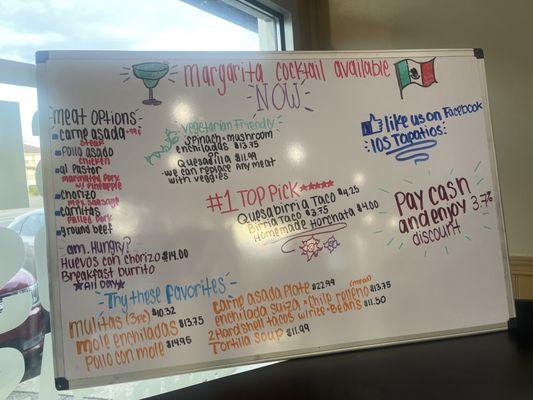 margarita cocktail available
NOW
meat options
carne asada -99¢
steak
pollo asado
chicken
al pastor
marinated pork
w/ pineapple
chorizo
mex sausage
carnitas
pulled pork
ground beef
am. Hungry?
Huevos con chorizo $14.00
Breakfast burrito
★All Day★
vegetarian friendly
spinach-mushroom
enchiladas $13.75
Quesadilla $11.99
-we can replace any meat
with veggies
#1 TOP Pick ★★★★★
Quesabirria Taco $4.25
Birria Taco $3.75
Homemade Horchata $4.00
like us on Facebook
los Tapatios
Pay cash
and enjoy 3.7%
discount
Try these Favorites
mulitas (3pc) $10.32
mole enchiladas $13.75
Pollo con mole $14.95
carne asada Plate $22.99
enchilada suiza - chile relleno $13.75
2 Hard shell tacos w/rice - Beans $11.50
Tortilla Soup $11.99